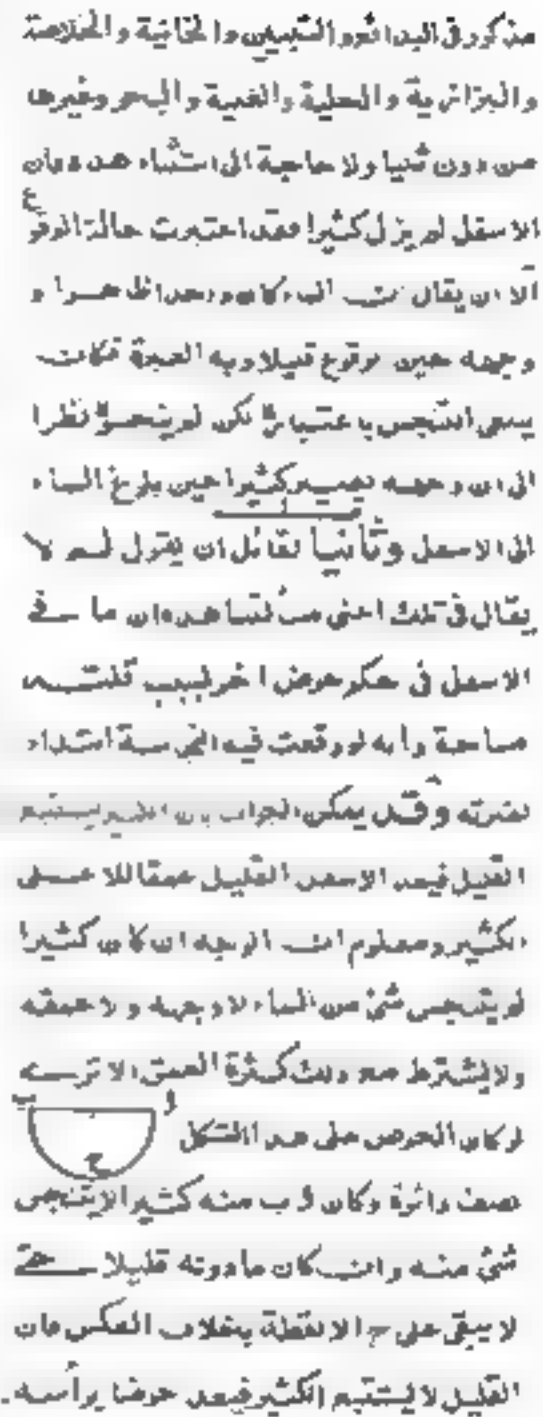 مذکور فی البدائع والتبیین والخانیة والخلاصة
والبزازیة والحلیة والغنیة والبحر وغیرها
من دون ثنیا ولا حاجة الی استثناء هذه فان
الاسفل لم یزل کثیرا فقد اعتبرت حالة الوقوع
الا ان یقال الماء کان وجهه طاهرا و
وجهه حین وقوع قلیلا وبه العبرة فکانت
ینبغی التنجس باعتباره لکن لم یتنجس نظرا
الی ان وجهه یصیر کثیرا حین بلوغ الماء
الی الاسفل وثانیا لقائل ان یقول لم لا
یقال فی تلک اعنی مسألتنا هذه ان ما فی
الاسفل فی حکم حوض اخر لسبب قلت
مساحة وانه لو وقعت فیه النجاسة ابتداء
لضرته وقد یمکن الجواب بان الکثیر یستتبع
القلیل فیعد الاسفل القلیل عمقا للاعلی
الکثیر ومعلوم ان الوجه ان کان کثیرا
لم یتنجس شیء من الماء لا وجهه ولا عمقه
ولا یشترط معه ذلک کثرة العمق الا تری
لو کان الحوض علی هذا الشکل ا ب ح
نصف دائرة وکان ا ب منه کثیرا لا یتنجس
شیء منه وان کان ما دونه قلیلا حتی
لا یبقی علی ح الا نقطة بخلاف العکس فان
القلیل لا یستتبع الکثیر فیعد حوضا برأسه.